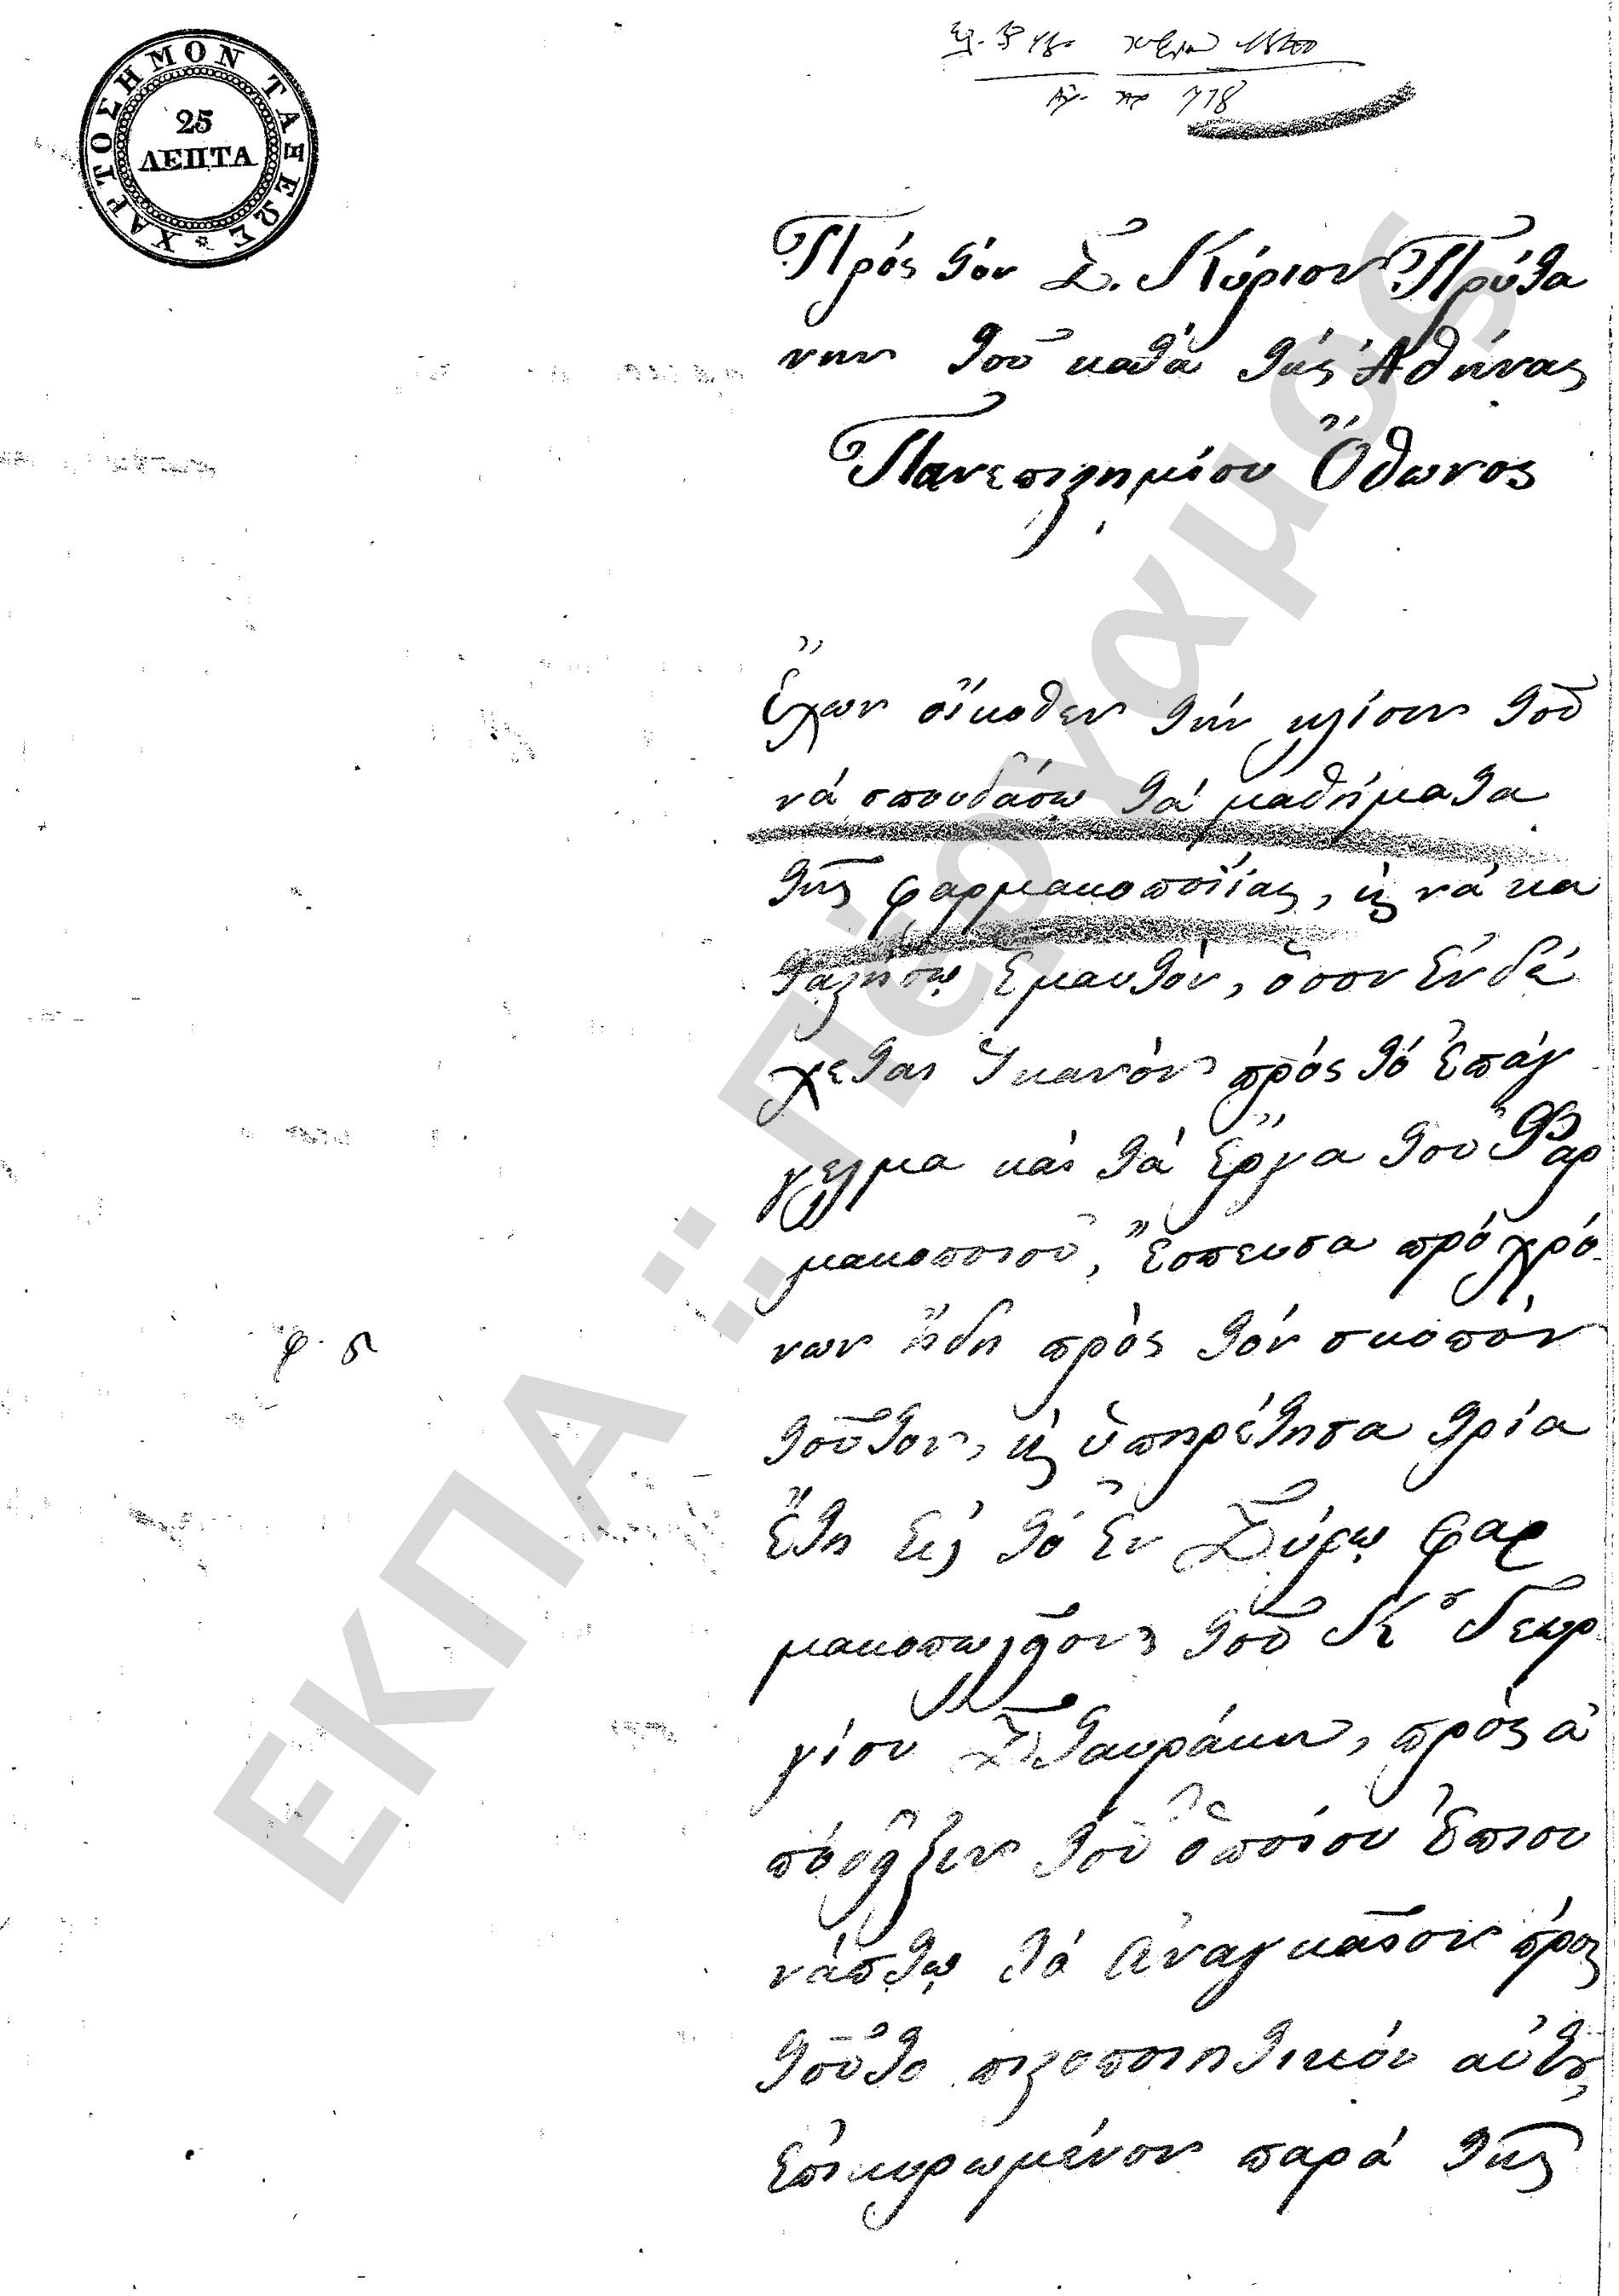 ΧΑΡΤΟΣΗΜΟΝ ΤΑΞΕΩΣ
25
ΛΕΠΤΑ
718
Πρός τόν Σ. Κύριον Πρύτα
νην τοῦ κατὰ τὰς Ἀθήνας
Πανεπιστημίου Ὄθωνος
Ἔχων οἴκοθεν τήν κλίσιν τοῦ
νά σπουδάσῳ τά μαθήματα
τῆς φαρμακοποιΐας, κ νά κα
ταστήσῳ ἐμαυτόν, ὅσον ἐνδέ
χεται ἱκανόν πρός τό ἐπάγ
γελμα καί τά ἔργα τοῦ Φαρ
μακοποιοῦ, ἔσπευσα πρό χρό-
νων ἤδη πρός τόν σκοπόν
τοῦτον, κ ὑπηρέτησα τρία
ἔτη εἰς τό ἐν Σύρῳ φαρ
μακοπωλεῖον τοῦ Κου Γεωρ-
γίου Σταυράκη, πρός ἀ
πόδειξιν τοῦ ὁποίου ἐπισυ
νάπτῳ τό ἀναγκαῖον πρός
τοῦτο πιστοποιητικόν αὐτοῦ,
ἐπικυρωμένον παρά τῆς
φ. 5
ΕΚΠΑ :: Πέργαμος